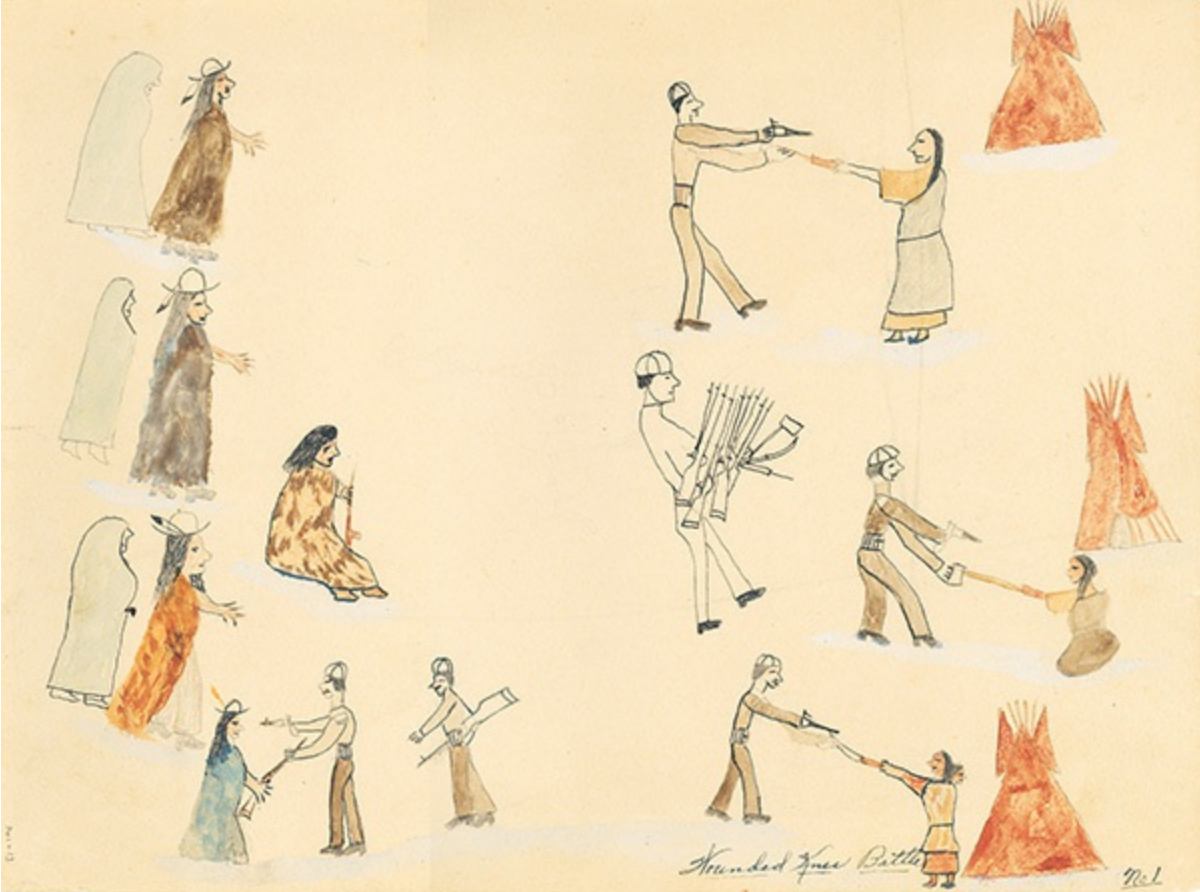 Wounded Knee Battle
No 1